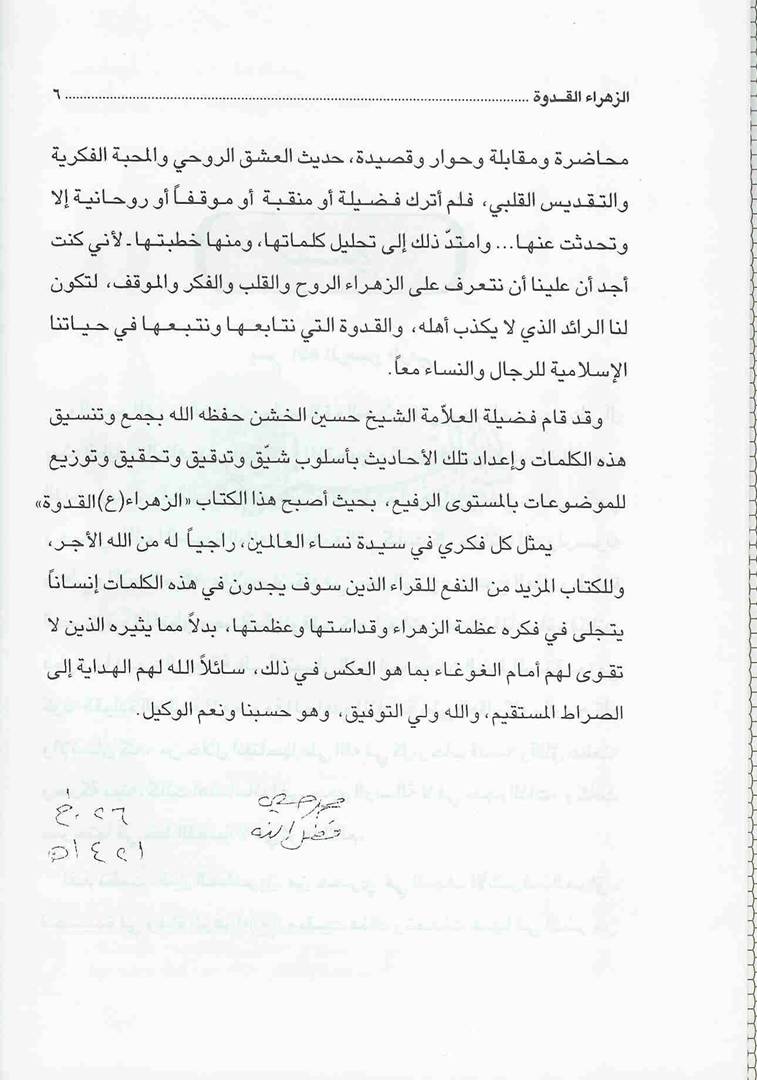 الزهراء القـدوة ........................................................................................................ ٦
محاضرة ومقابلة وحوار وقصيدة، حديث العشق الروحي والمحبة الفكرية
والتقديس القلبي، فلم أترك فضيلة أو منقبة أو موقفاً أو روحانية إلا
وتحدثت عنها... وامتدّ ذلك إلى تحليل كلماتها، ومنها خطبتها ـ لأني كنت
أجد أن علينا أن نتعرف على الزهراء الروح والقلب والفكر والموقف، لتكون
لنا الرائد الذي لا يكذب أهله، والقدوة التي نتابعها ونتبعها في حياتنا
الإسلامية للرجال والنساء معاً.
وقد قام فضيلة العلاّمة الشيخ حسين الخشن حفظه الله بجمع وتنسيق
هذه الكلمات وإعداد تلك الأحاديث بأسلوب شيّق وتدقيق وتحقيق وتوزيع
للموضوعات بالمستوى الرفيع، بحيث أصبح هذا الكتاب «الزهراء(ع)القدوة»
يمثل كل فكري في سيدة نساء العالمين، راجياً له من الله الأجر،
وللكتاب المزيد من النفع للقراء الذين سوف يجدون في هذه الكلمات إنساناً
يتجلى في فكره عظمة الزهراء وقداستها وعظمتها، بدلاً مما يثيره الذين لا
تقوى لهم أمام الغوغاء بما هو العكس في ذلك، سائلاً الله لهم الهداية إلى
الصراط المستقيم، والله ولي التوفيق، وهو حسبنا ونعم الوكيل.
محمد حسين
فضل الله
١٤٢١هـ